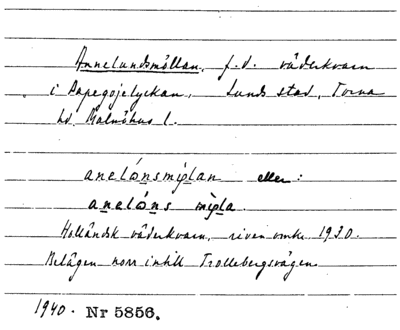 Annelundsmöllan, f.d. väderkvarn
i Papegojelyckan, Lunds stad, Torna
hd, Malmöhus l.
anelónsmi̯plan eller:
anelóns mi̯pla.
Holländsk väderkvarn, riven omkr. 1930.
Belägen norr intill Trollebergsvägen
1940. Nr 5856.